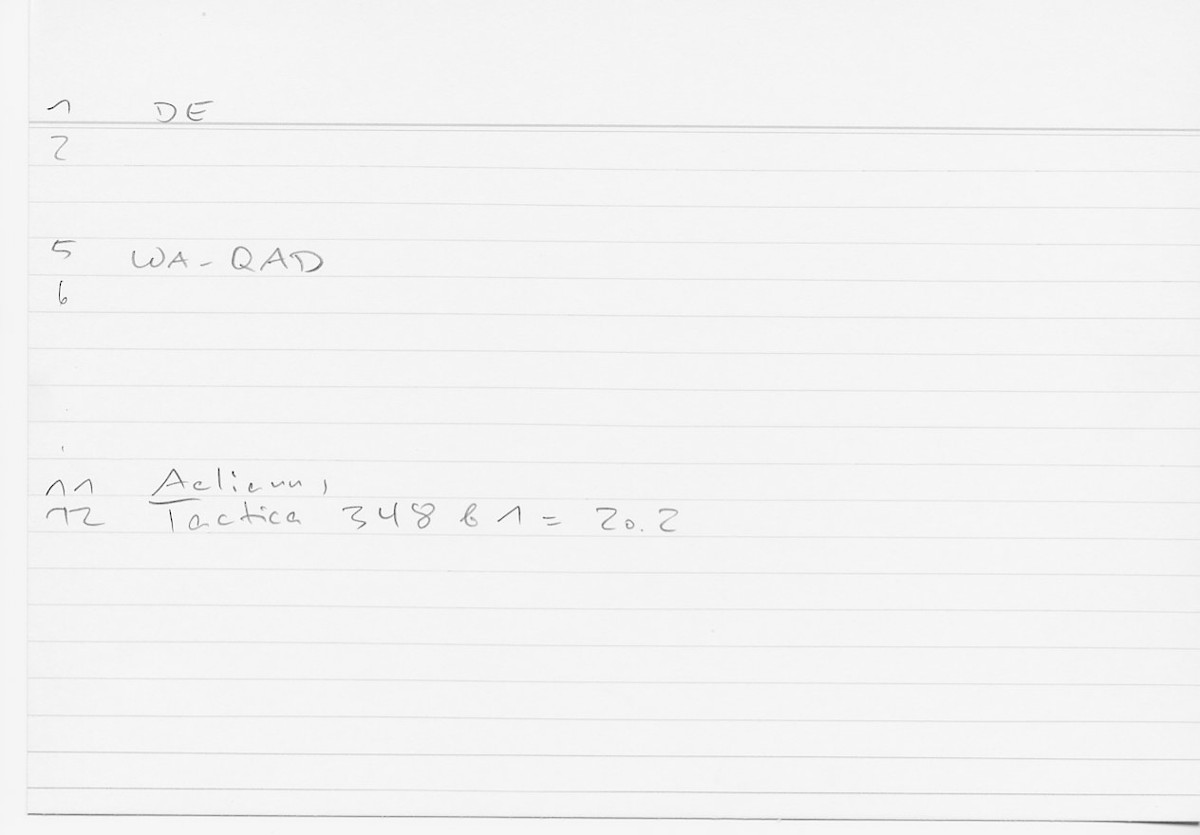 1 DE
2
5 WA-QAD
6
11 Aelianus,
12 Tactica 348 b 1 = 20.2